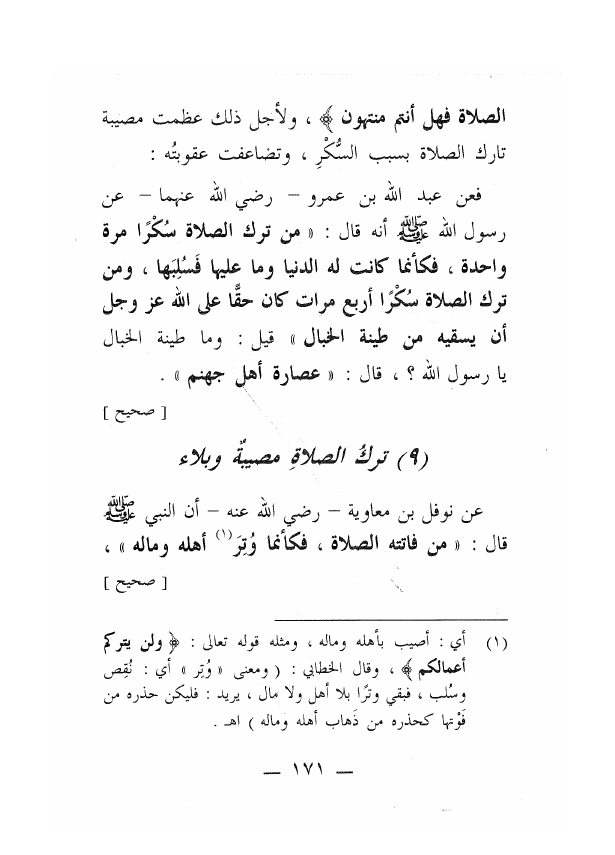 الصلاة فهل أنتم منتهون ﴾ ، ولأجل ذلك عظمت مصيبة
تارك الصلاة بسبب السُّكْرِ ، وتضاعفت عقوبتُه :
فعن عبد الله بن عمرو – رضي الله عنهما – عن
رسول الله ﷺ أنه قال : « من ترك الصلاة سُكْرًا مرة
واحدة ، فكأنما كانت له الدنيا وما عليها فَسُلِبَها ، ومن
ترك الصلاة سُكْرًا أربع مرات كان حقًّا على الله عز وجل
أن يسقيه من طينة الخبال » قيل : وما طينة الخبال
يا رسول الله ؟ ، قال : « عصارة أهل جهنم » .
[ صحيح ]
(٩) تركُ الصلاةِ مصيبةٌ وبلاء
عن نوفل بن معاوية – رضي الله عنه – أن النبي ﷺ
قال : « من فاتته الصلاة ، فكأنما وُتِرَ(١) أهله وماله » ،
[ صحيح ]
(١) أي : أصيب بأهله وماله ، ومثله قوله تعالى : ﴿ ولن يتركم
أعمالكم ﴾ ، وقال الخطابي : ( ومعنى « وُتِر » أي : نُقِص
وسُلب ، فبقي وترًا بلا أهل ولا مال ، يريد : فليكن حذره من
فَوْتها كحذره من ذَهاب أهله وماله ) اهـ .
— ١٧١ —